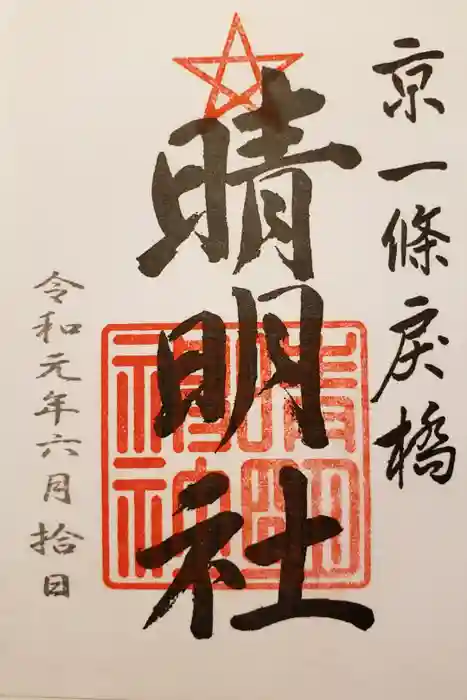 京一條戻橋
晴明社
晴明
神社
令和元年六月拾日